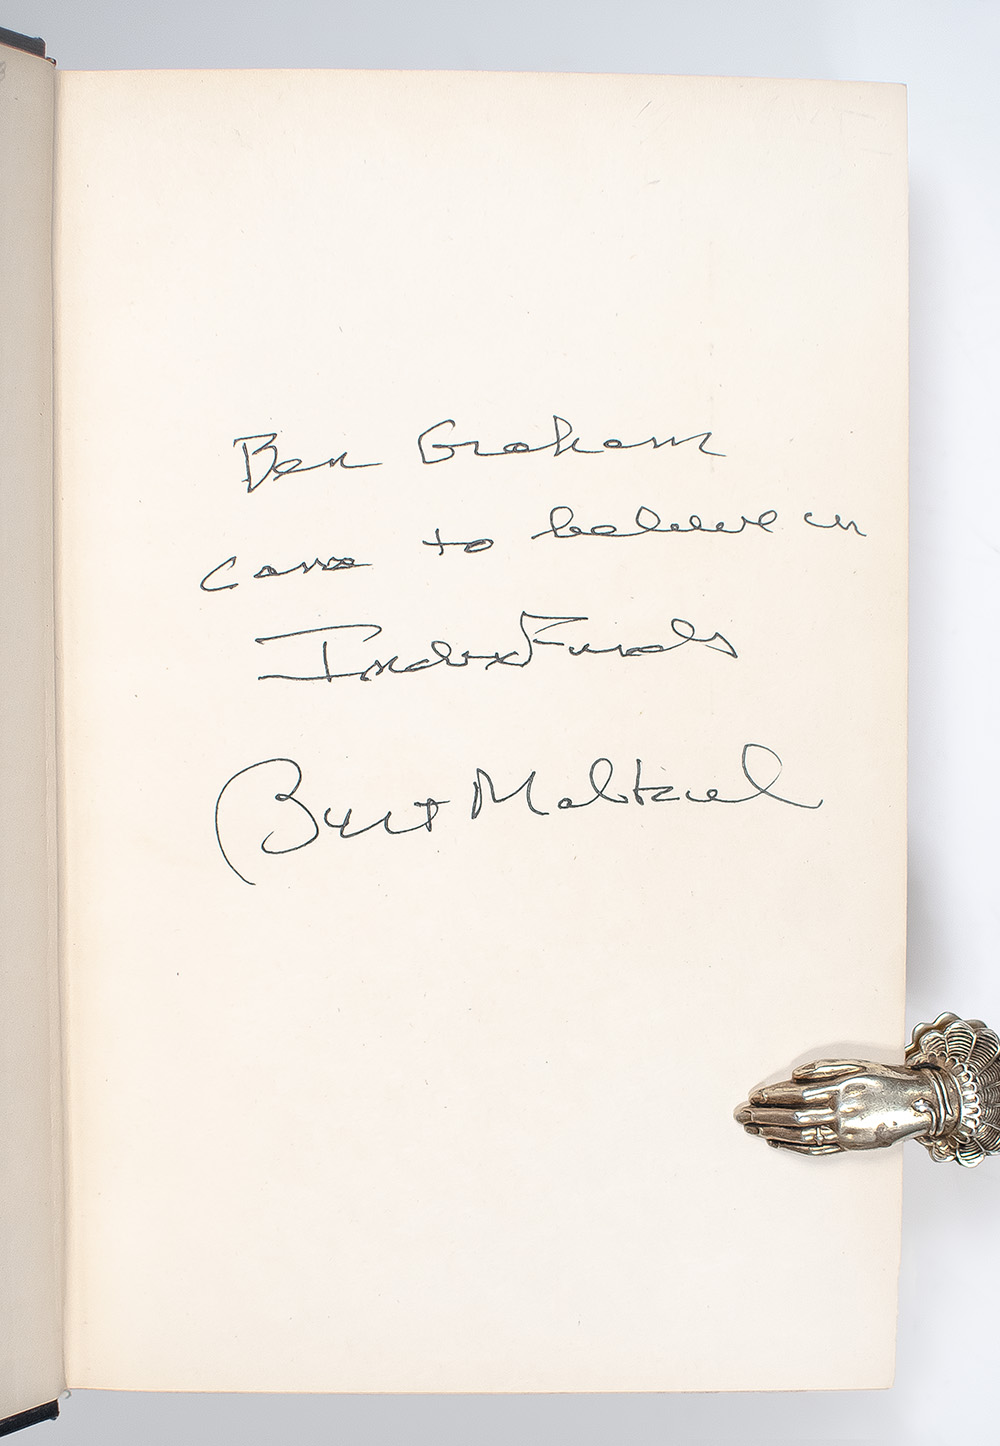 Ben Graham
came to believe in
Index Funds
Burt Malkiel